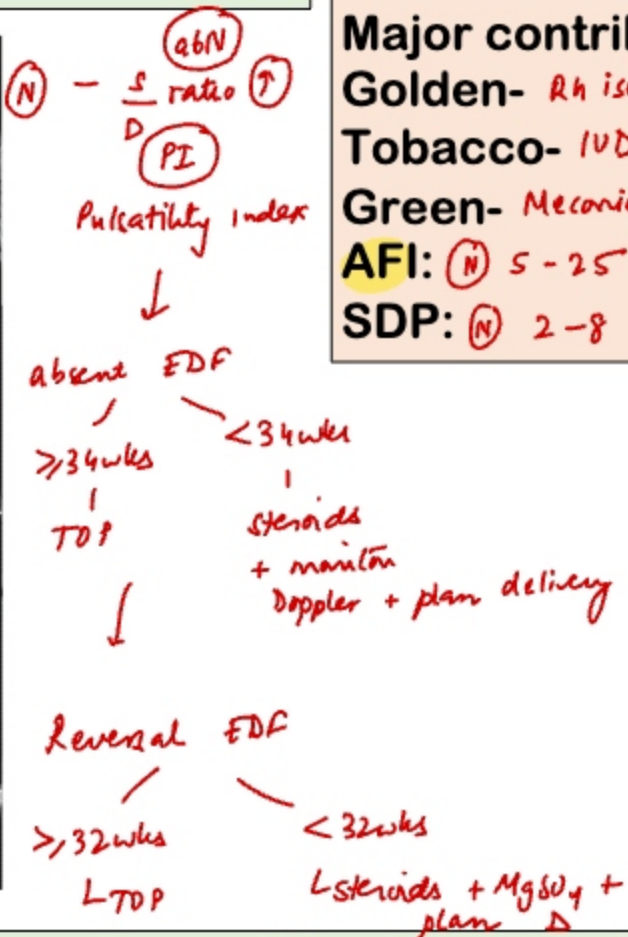 abN
N - S/D ratio ↑
PI
Pulsatility index
↓
absent EDF
≥34wks
<34wks
TOP
steroids
+ monitor
Doppler + plan delivery
↓
Reversal EDF
≥32wks
<32wks
TOP
steroids + MgSO4 +
plan D
Major contri
Golden- Rh is
Tobacco- IUD
Green- Meconi
AFI: N 5-25
SDP: N 2-8